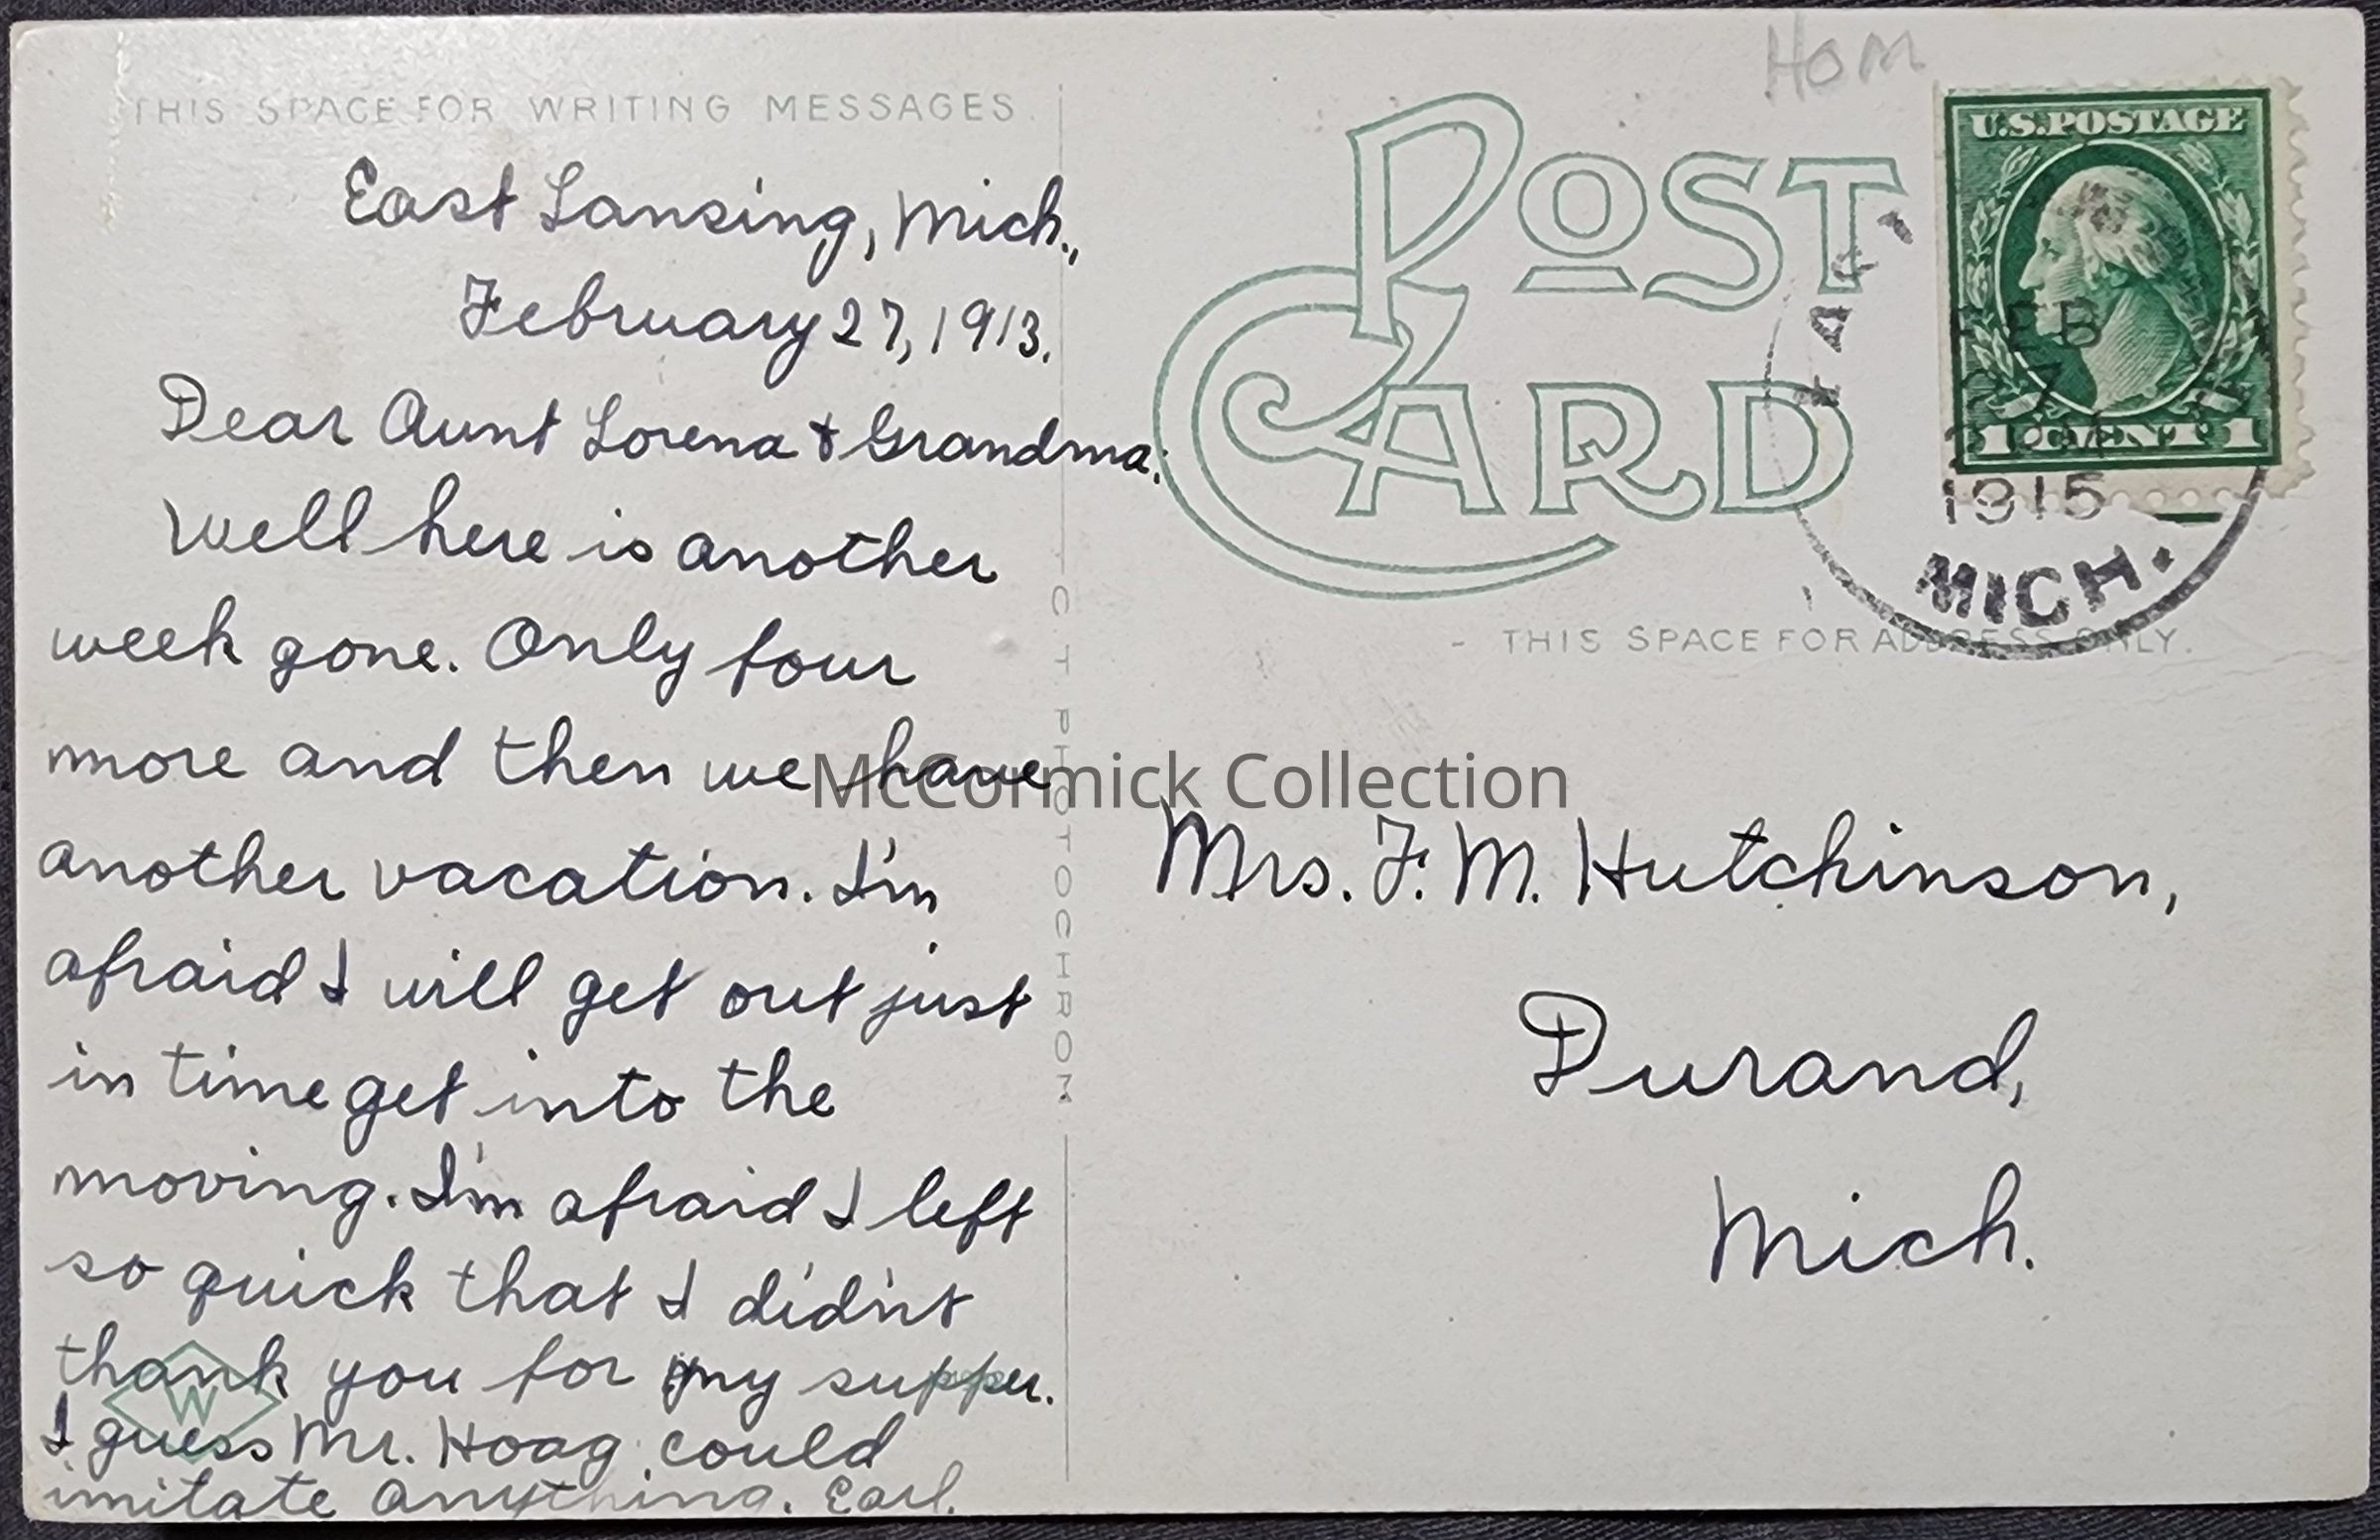 THIS SPACE FOR WRITING MESSAGES.
East Lansing, Mich.,
February 27, 1913.
Dear Aunt Lorena & Grandma:
Well here is another
week gone. Only four
more and then we have
another vacation. I'm
afraid I will get out just
in time get into the
moving. I'm afraid I left
so quick that I didn't
thank you for my supper.
I guess Mr. Hoag could
imitate anything. Earl.
W
C T PHOTOCHROM
Hom
POST
CARD
U.S. POSTAGE
1 CENT 1
FEB
27
1915
MICH.
THIS SPACE FOR ADDRESS ONLY.
McCormick Collection
Mrs. F. M. Hutchinson,
Durand,
Mich.